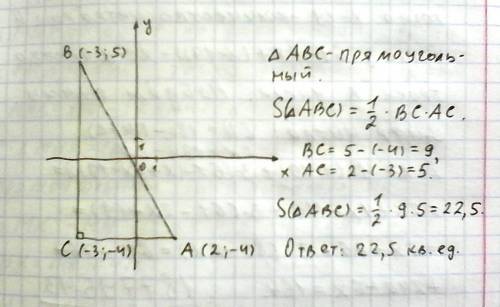 y
B (-3; 5)
1
0 1
x
C (-3; -4)
A (2; -4)
Δ ABC - прямоуголь-
ный.
S(Δ ABC) = 1/2 · BC · AC.
BC = 5 - (-4) = 9,
AC = 2 - (-3) = 5.
S(Δ ABC) = 1/2 · 9 · 5 = 22,5.
Ответ: 22,5 кв. ед.